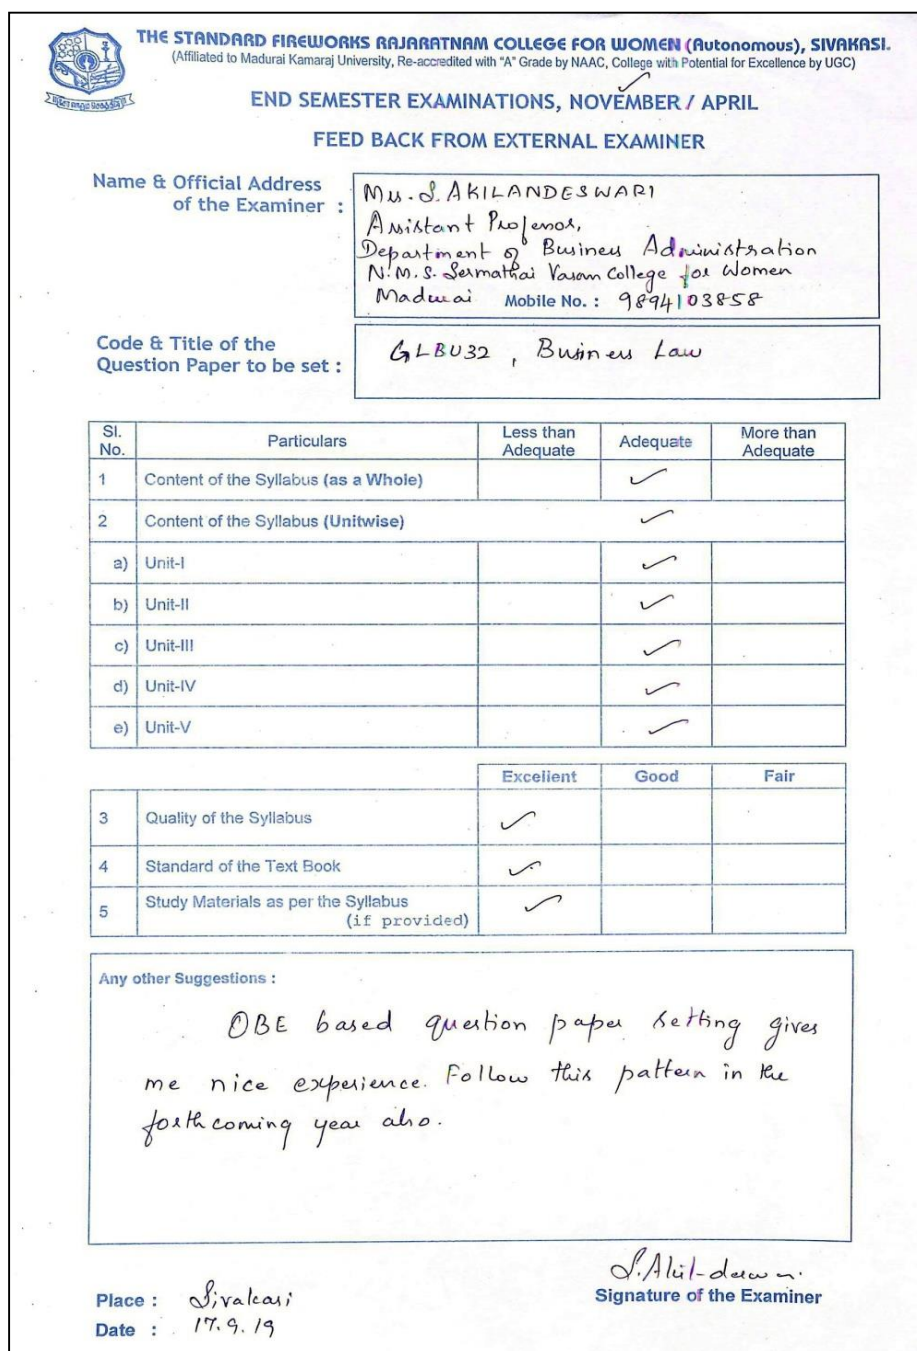 THE STANDARD FIREWORKS RAJARATNAM COLLEGE FOR WOMEN (Autonomous), SIVAKASI.
(Affiliated to Madurai Kamaraj University, Re-accredited with "A" Grade by NAAC, College with Potential for Excellence by UGC)
END SEMESTER EXAMINATIONS, NOVEMBER / APRIL
FEED BACK FROM EXTERNAL EXAMINER
Name & Official Address
of the Examiner :
Mrs. S. AKILANDESWARI
Assistant Professor,
Department of Business Administration
N.M.S. Sermathai Vasan College for Women
Madurai Mobile No. : 9894103858
Code & Title of the
Question Paper to be set :
GLBU32 , Business Law
Sl. No. Particulars Less than Adequate Adequate More than Adequate
1 Content of the Syllabus (as a Whole) ✓
2 Content of the Syllabus (Unitwise) ✓
a) Unit-I ✓
b) Unit-II ✓
c) Unit-III ✓
d) Unit-IV ✓
e) Unit-V ✓
Excellent Good Fair
3 Quality of the Syllabus ✓
4 Standard of the Text Book ✓
5 Study Materials as per the Syllabus ✓
(if provided)
Any other Suggestions :
OBE based question paper setting gives
me nice experience. Follow this pattern in the
forthcoming year also.
Place : Sivakasi
Date : 17.9.19
Signature of the Examiner